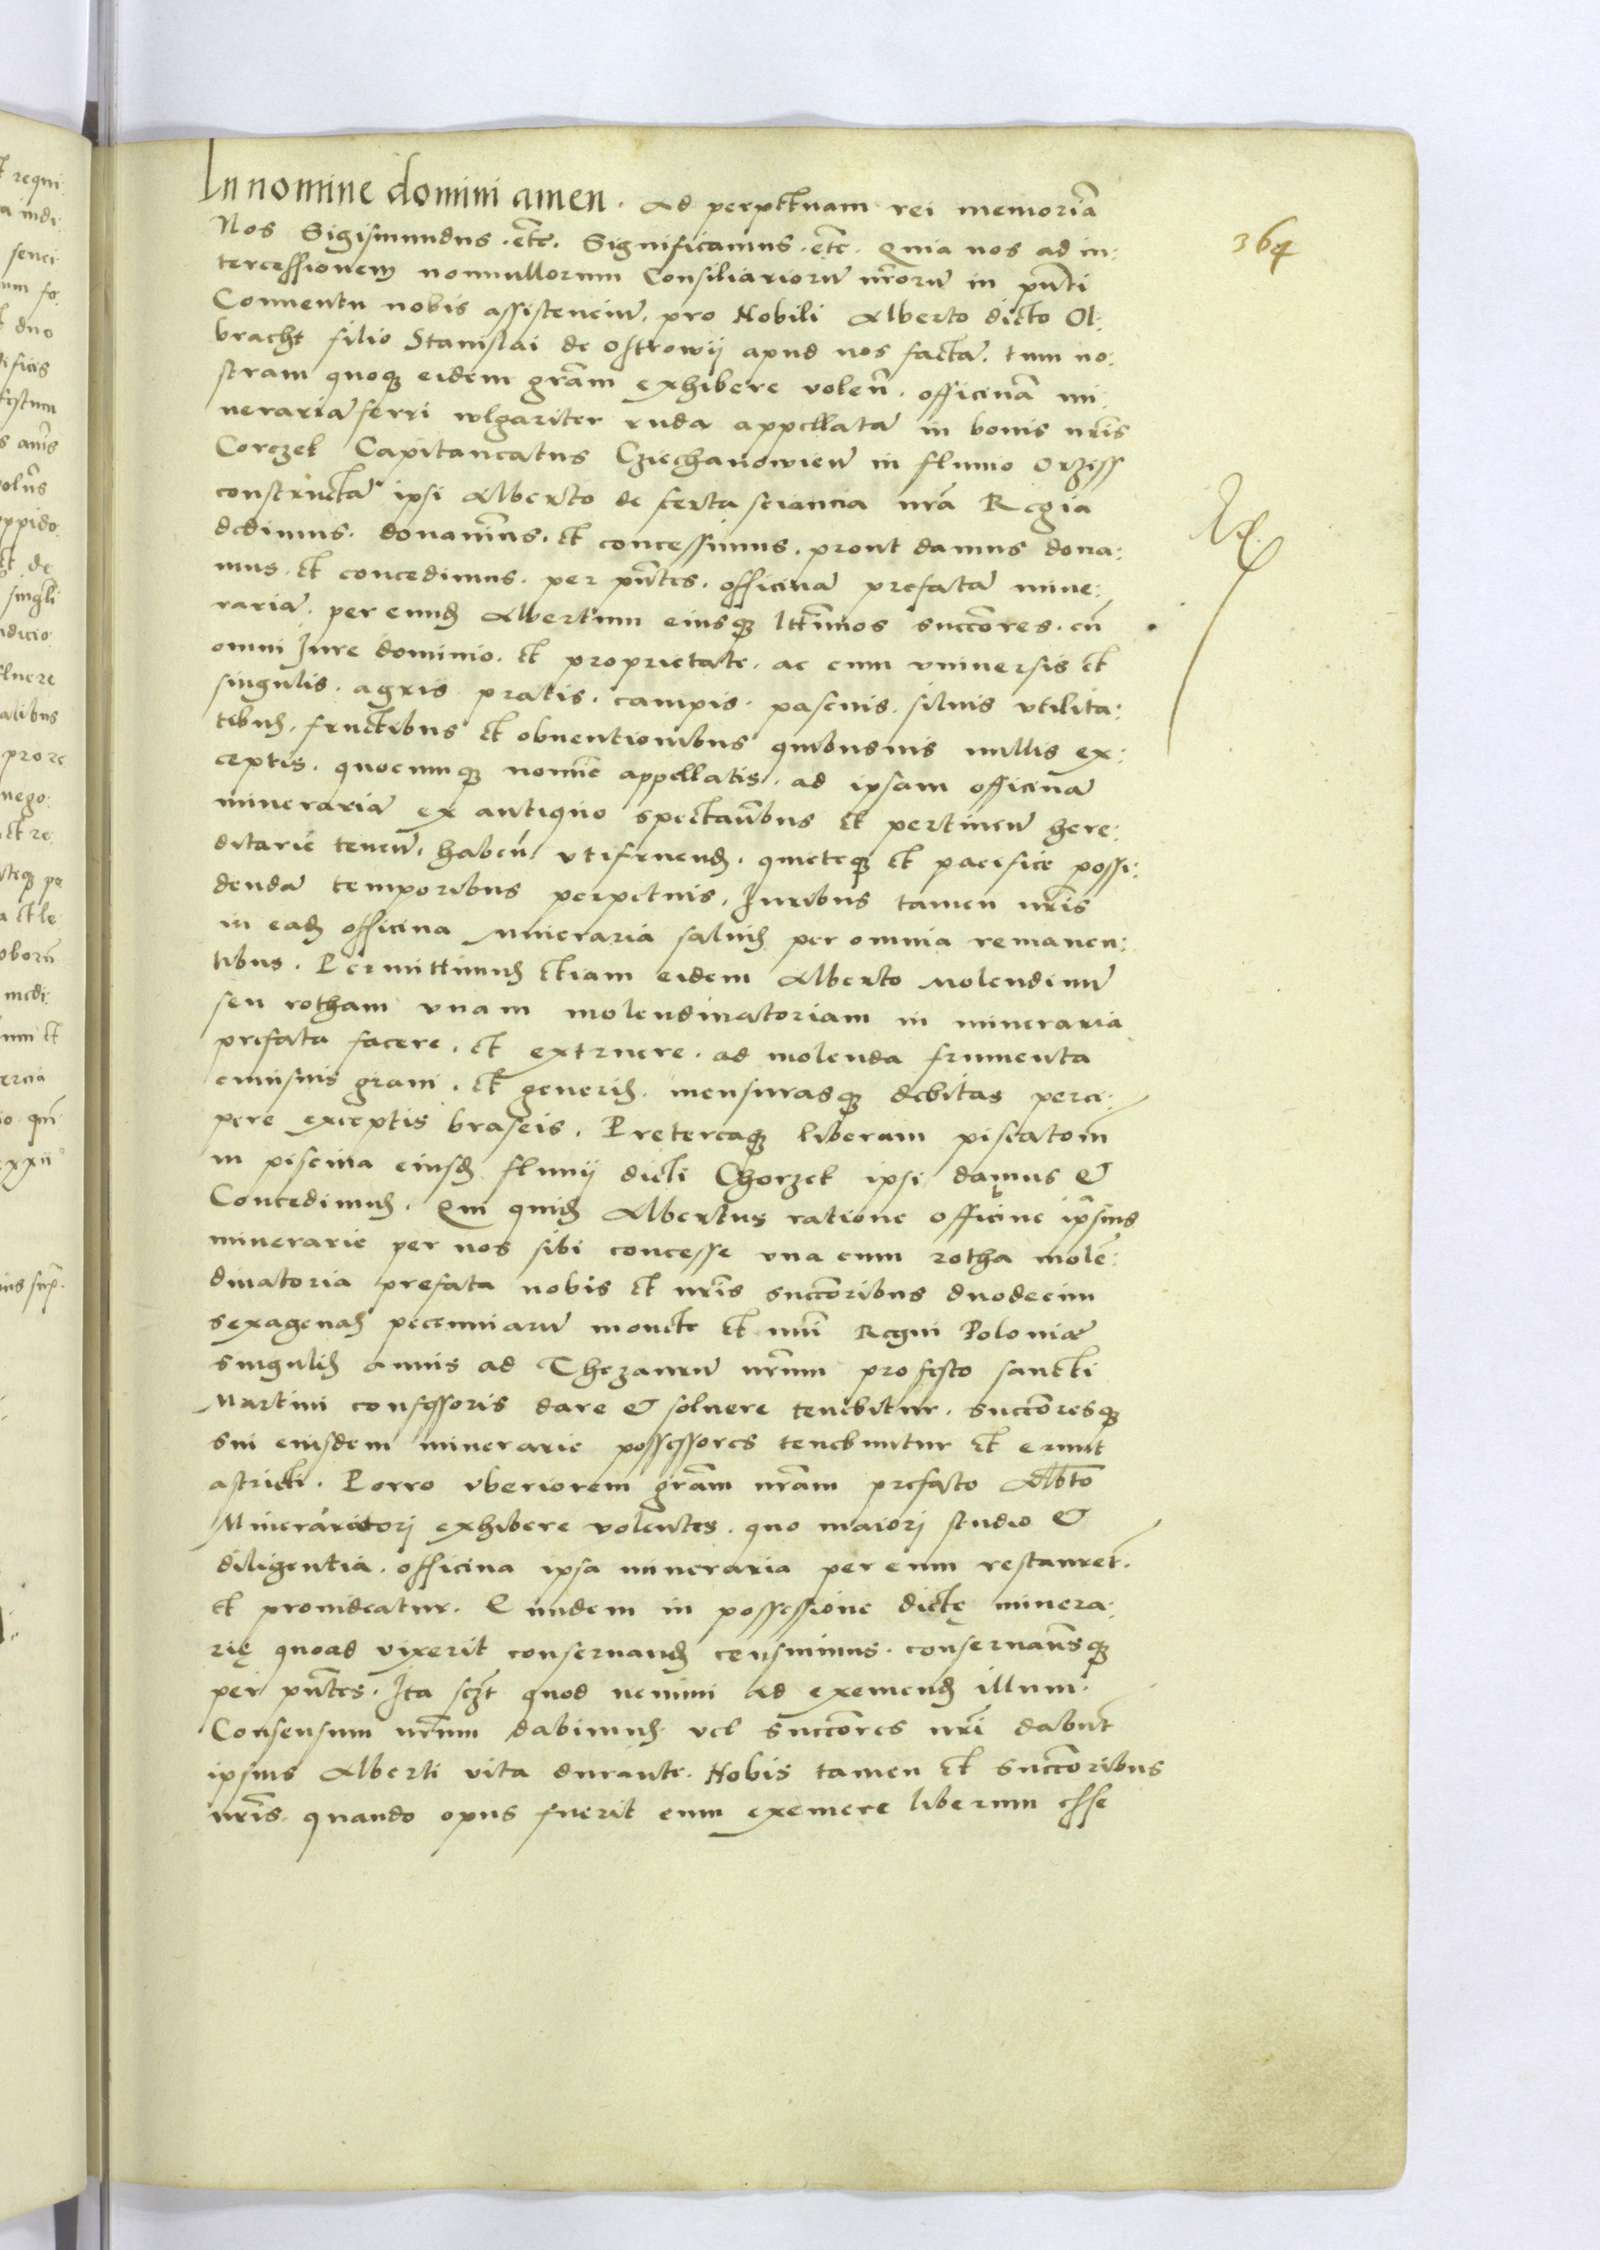 In nomine domini amen. Ad perpetuam rei memoriā
364
Nos Sigismundus. etc̄. Significamus. etc̄. Quia nos ad in:
tercessionem nonnullorum Consiliariorū nr̄orū in pn̄ti
Conuentu nobis assistenciū. pro Nobili Alberto dicto Ol:
bracht filio Stanislai de Ostrowij apud nos factā. tum no:
stram quoqꝫ eidem gr̄am exhibere volen̄. officinā mi:
nerariā ferri wlgariter ruda appellatā in bonis nr̄is
Corczel Capitaneatus Cziechanowien̄ in fluuio Orziss
constructā ipsi Alberto de certa sciencia nr̄a Regia
dedimus. donauimus. et concessimus. prout damus dona:
mus. et concedimus. per pn̄tes. officinā prefatā mine:
rariā. per eundꝫ Albertum eiusqꝫ ltt̄imos succ̄ores. cū
omni Jure dominio. et proprietate. ac cum vniuersis et
singulis. agris pratis. campis. pascuis. siluis vtilita:
tibus. fructibus et obuentionibus quibusuis nullis ex:
ceptis. quocumqꝫ nomīe appellatis. ad ipsam officinā
minerariā ex antiquo spectan̄tibus et pertinen̄ here:
ditarie tenen̄. haben̄. vtifruendꝫ. quieteqꝫ et pacifice possi:
dendā temporibus perpetuis. Juribus tamen nr̄is
in eadꝫ officina Mineraria saluis per omnia remanen:
tibus. Permittimus etiam eidem Alberto Molendinū
seu rotham vnam molendinatoriam in mineraria
prefata facere. et extruere. ad molenda frumenta
cuiusuis grani. et generis. mensurasqꝫ debitas perci:
pere exceptis braseis. Pretereaqꝫ liberam piscatōm
in piscina eiusdꝫ fluuij dicti Chorzel ipsi damus &
Concedimus. Qui quidꝫ Albertus ratione officine ipsius
minerarie per nos sibi concesse vna cum rotha molē:
dinatoria prefata nobis et nr̄is succ̄oribus duodecim
sexagenas pecuniarū monete et nūi Regni Poloniæ
singulis annis ad Thezaurū nr̄um pro festo sancti
Martini confessoris dare & soluere tenebitur. succ̄oresqꝫ
sui eiusdem minerarie possessores tenebuntur et erunt
astricti. Porro vberiorem gr̄am nr̄am prefato Alb̄to
Minerariatorj exhibere volentes. quo maiorj studio &
diligentia. officina ipsa mineraria per eum restauret̄.
et prouideatur. Eundem in possessione dictę minera:
rię quoad vixerit conseruandꝫ censuimus. conseruam̄usqꝫ
per pn̄tes. Ita scꝫt quod nemini ad exemendꝫ illum.
Consensum nr̄um dabimus vel succ̄ores nr̄i dabun̄t
ipsius Alberti vita durante. Nobis tamen et succ̄oribus
nr̄is quando opus fuerit eum exemere liberum esse